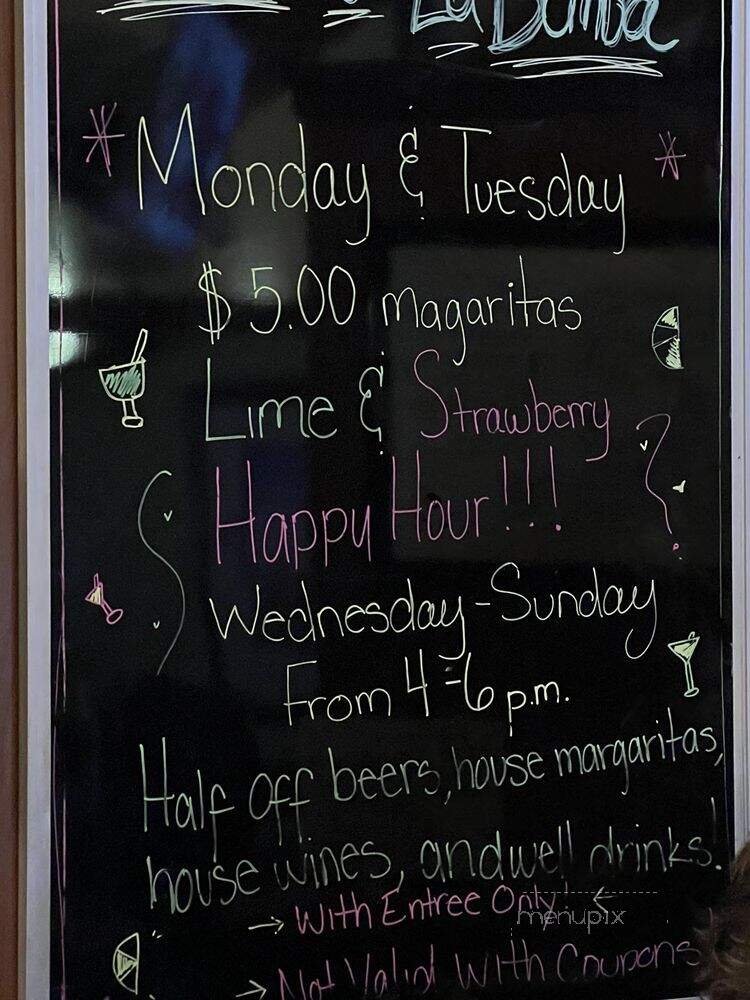 La Bamba
* Monday & Tuesday *
$5.00 magaritas
Lime & Strawberry
Happy Hour!!!
Wednesday-Sunday
From 4-6 p.m.
Half off beers, house margaritas,
house wines, and well drinks.
→ With Entree Only! ←
menupix
→ Not Valid With Coupons